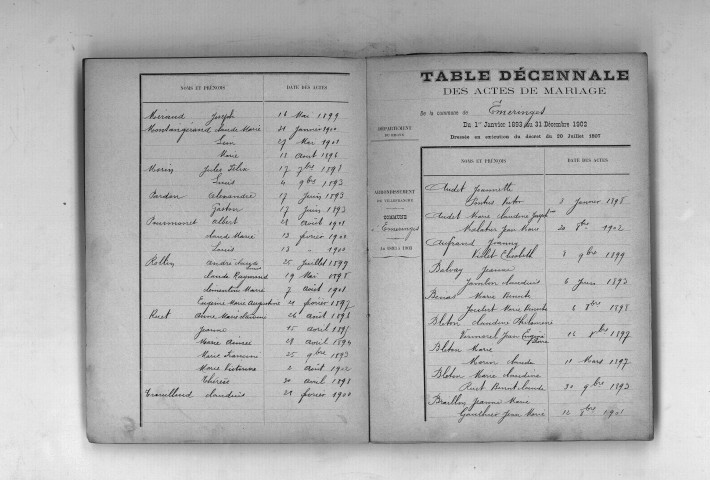 NOMS ET PRÉNOMS DATE DES ACTES
Mérand Joseph 16 Mai 1899
Montangérand Claude Marie 31 Janvier 1900
27 Mai 1901
Marie 11 Août 1896
Morin Jules 17 7bre 1898
Louis 4 9bre 1893
Pardon Alexandre 17 Juin 1893
Gaston 17 Juin 1893
Albert 21 Août 1901
Claude Marie 13 février 1900
Louis 13 1900
Rollin André 25 Juillet 1899
Claude Raymond 19 Mai 1895
Marie 7 Août 1901
Eugène Marie Augustine 21 février 1897
Ruet Anne Marie 26 Août 1896
Jeanne 15 Avril 1895
Marie Aimée 28 Avril 1894
Marie Francine 25 9bre 1893
Marie Victorine 2 Août 1902
Thérèse 30 Avril 1898
Claudius 21 février 1900
TABLE DÉCENNALE
DES ACTES DE MARIAGE
De la commune de Emeringes
Du 1er Janvier 1893 au 31 Décembre 1902
Dressée en exécution du décret du 20 Juillet 1807
DÉPARTEMENT
DU RHONE
ARRONDISSEMENT
DE VILLEFRANCHE
COMMUNE
Emeringes
de 1893 à 1902
NOMS ET PRÉNOMS DATE DES ACTES
Audet Jeannette
3 Janvier 1898
Audet Marie Claudine
Jean Marie 20 1902
Aufrand Joanny
Violet 8 9bre 1899
Balvay Jeanne
Jambon Claudius 6 1893
Marie
Marie 6 8bre 1898
Bleton Claudine Philomène
Vermorel Jean 16 1897
Bleton Marie
Morin Claude 11 Mars 1897
Bleton Marie Claudine
Ruet Claude 30 9bre 1893
Braillon Jeanne Marie
Gauthier Jean Marie 12 1901